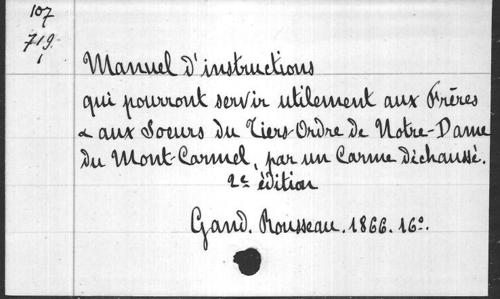 107
719
1
Manuel d'instructions
qui pourront servir utilement aux Frères
& aux Soeurs du Tiers-Ordre de Notre-Dame
du Mont-Carmel, par un Carme déchaussé.
2e édition
Gand. Rousseau. 1866. 16o.